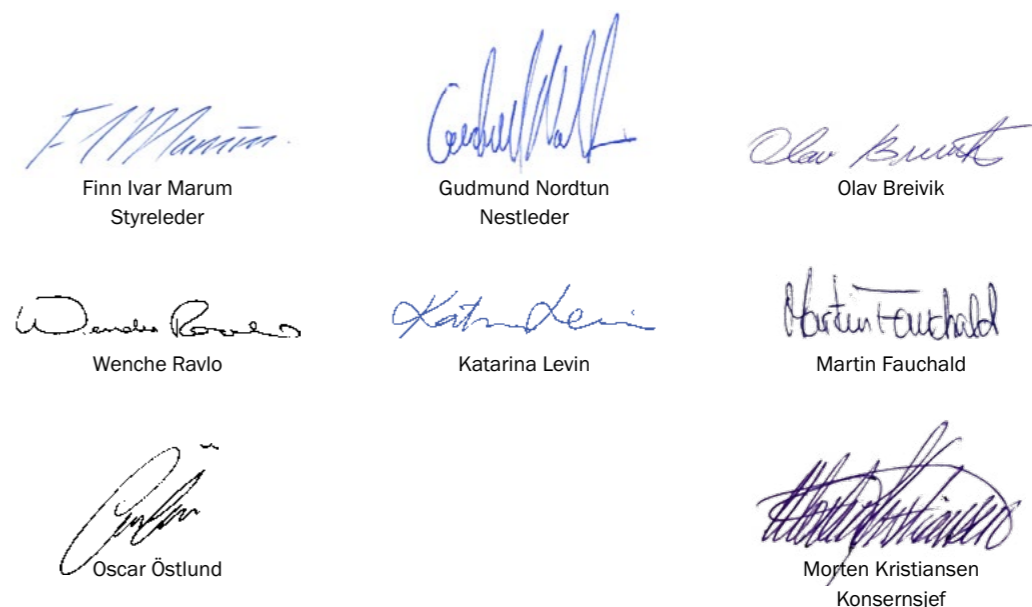 F I Marum.
Finn Ivar Marum
Styreleder
Gudmund Nordtun
Nestleder
Olav Breivik
Olav Breivik
Wenche Ravlo
Wenche Ravlo
Katarina Levin
Martin Fauchald
Martin Fauchald
Oscar Östlund
Morten Kristiansen
Morten Kristiansen
Konsernsjef